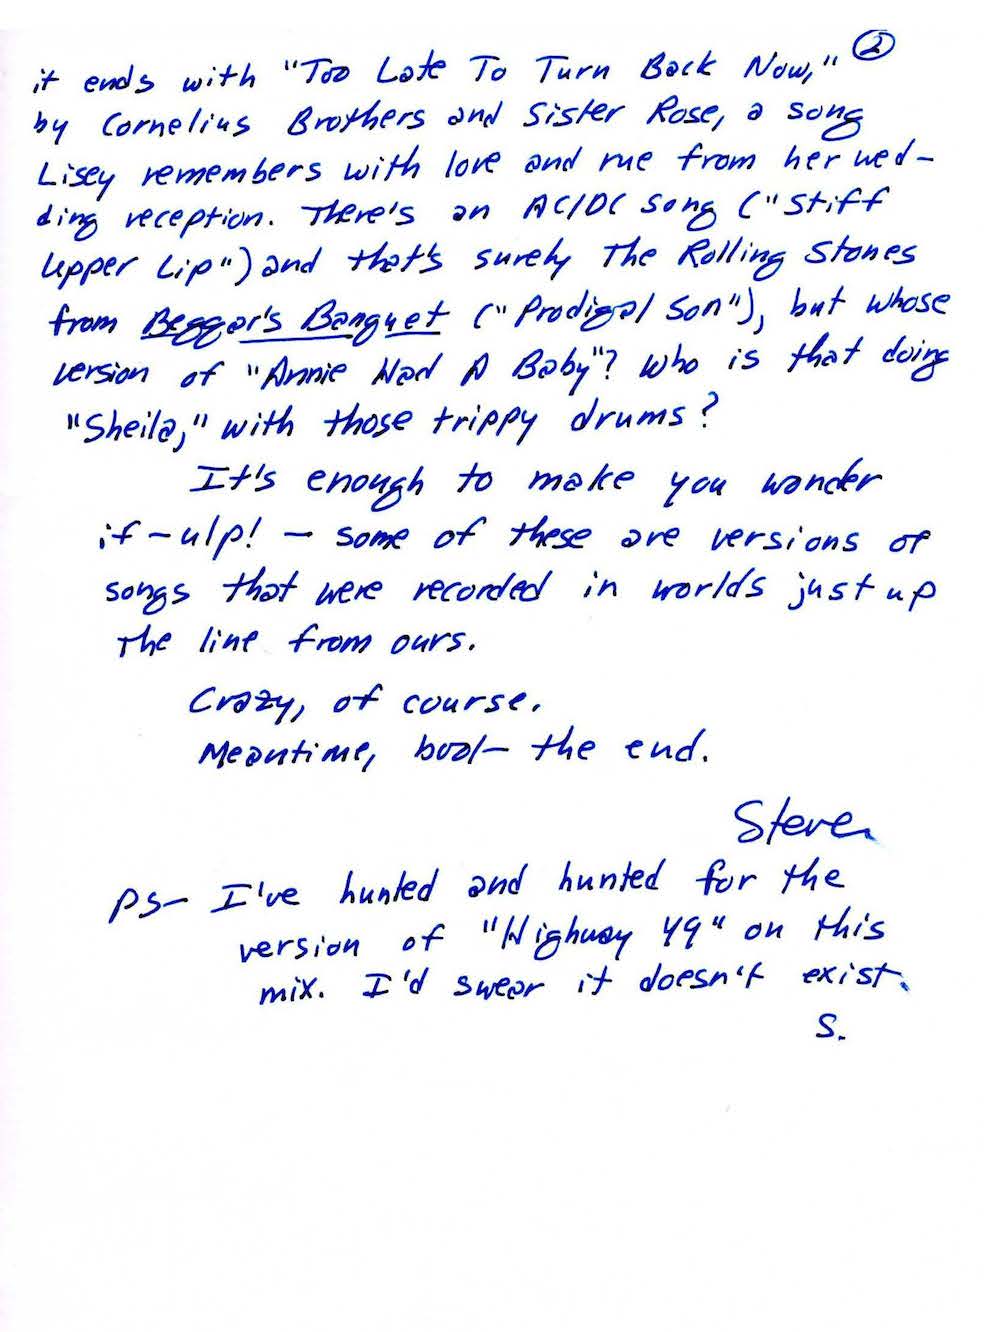 ②
it ends with "Too Late To Turn Back Now,"
by Cornelius Brothers and Sister Rose, a song
Lisey remembers with love and rue from her wed-
ding reception. There's an AC/DC song ("Stiff
Upper Lip") and that's surely The Rolling Stones
from Beggar's Banquet ("Prodigal Son"), but whose
version of "Annie Had A Baby"? Who is that doing
"Sheila," with those trippy drums?
It's enough to make you wonder
if - ulp! - some of these are versions of
songs that were recorded in worlds just up
the line from ours.
Crazy, of course.
Meantime, bool - the end.
Steve
PS - I've hunted and hunted for the
version of "Highway 49" on this
mix. I'd swear it doesn't exist.
S.